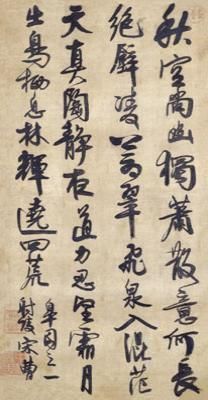 秋空尚幽獨蕭散意何長
絕壁凌翠飛泉入混茫
天真陶靜友道力忍堅霜月
出鳥栖息林輝遶四荒
皋園之一
射陵宋曹